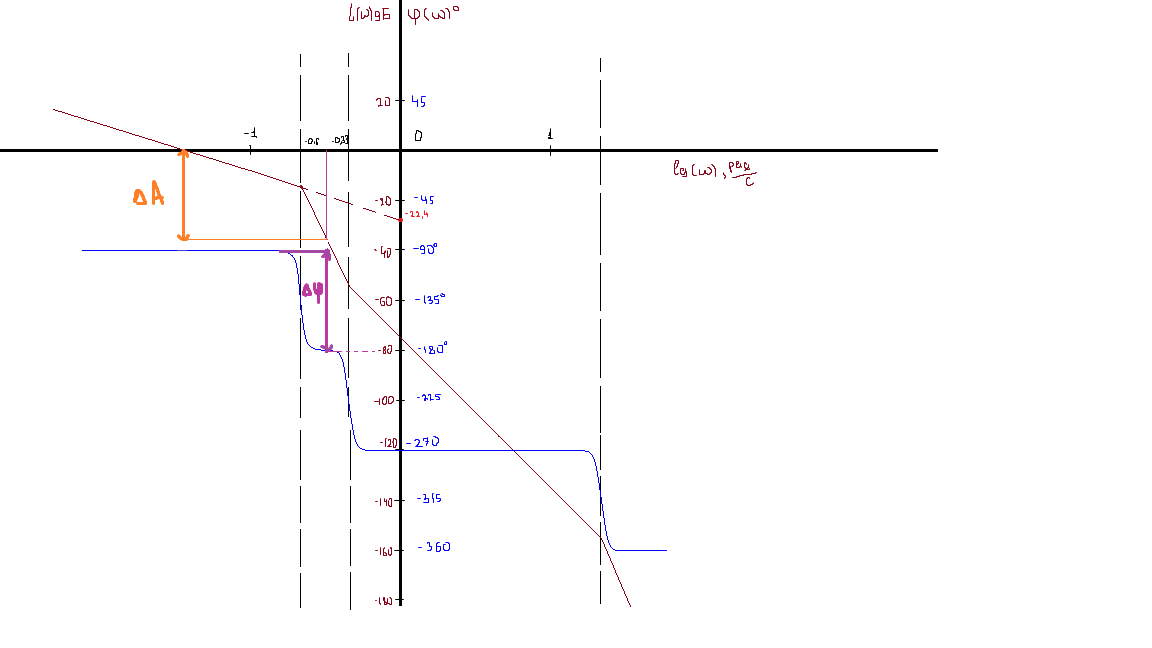 L(ω)дБ φ(ω)°
20 45
-1 0 1
lg(ω), рад/с
ΔA
-20 -45
-22,4
-40 -90°
Δφ
-60 -135°
-80 -180°
-100 -225
-120 -270
-140 -315
-160 -360
-180